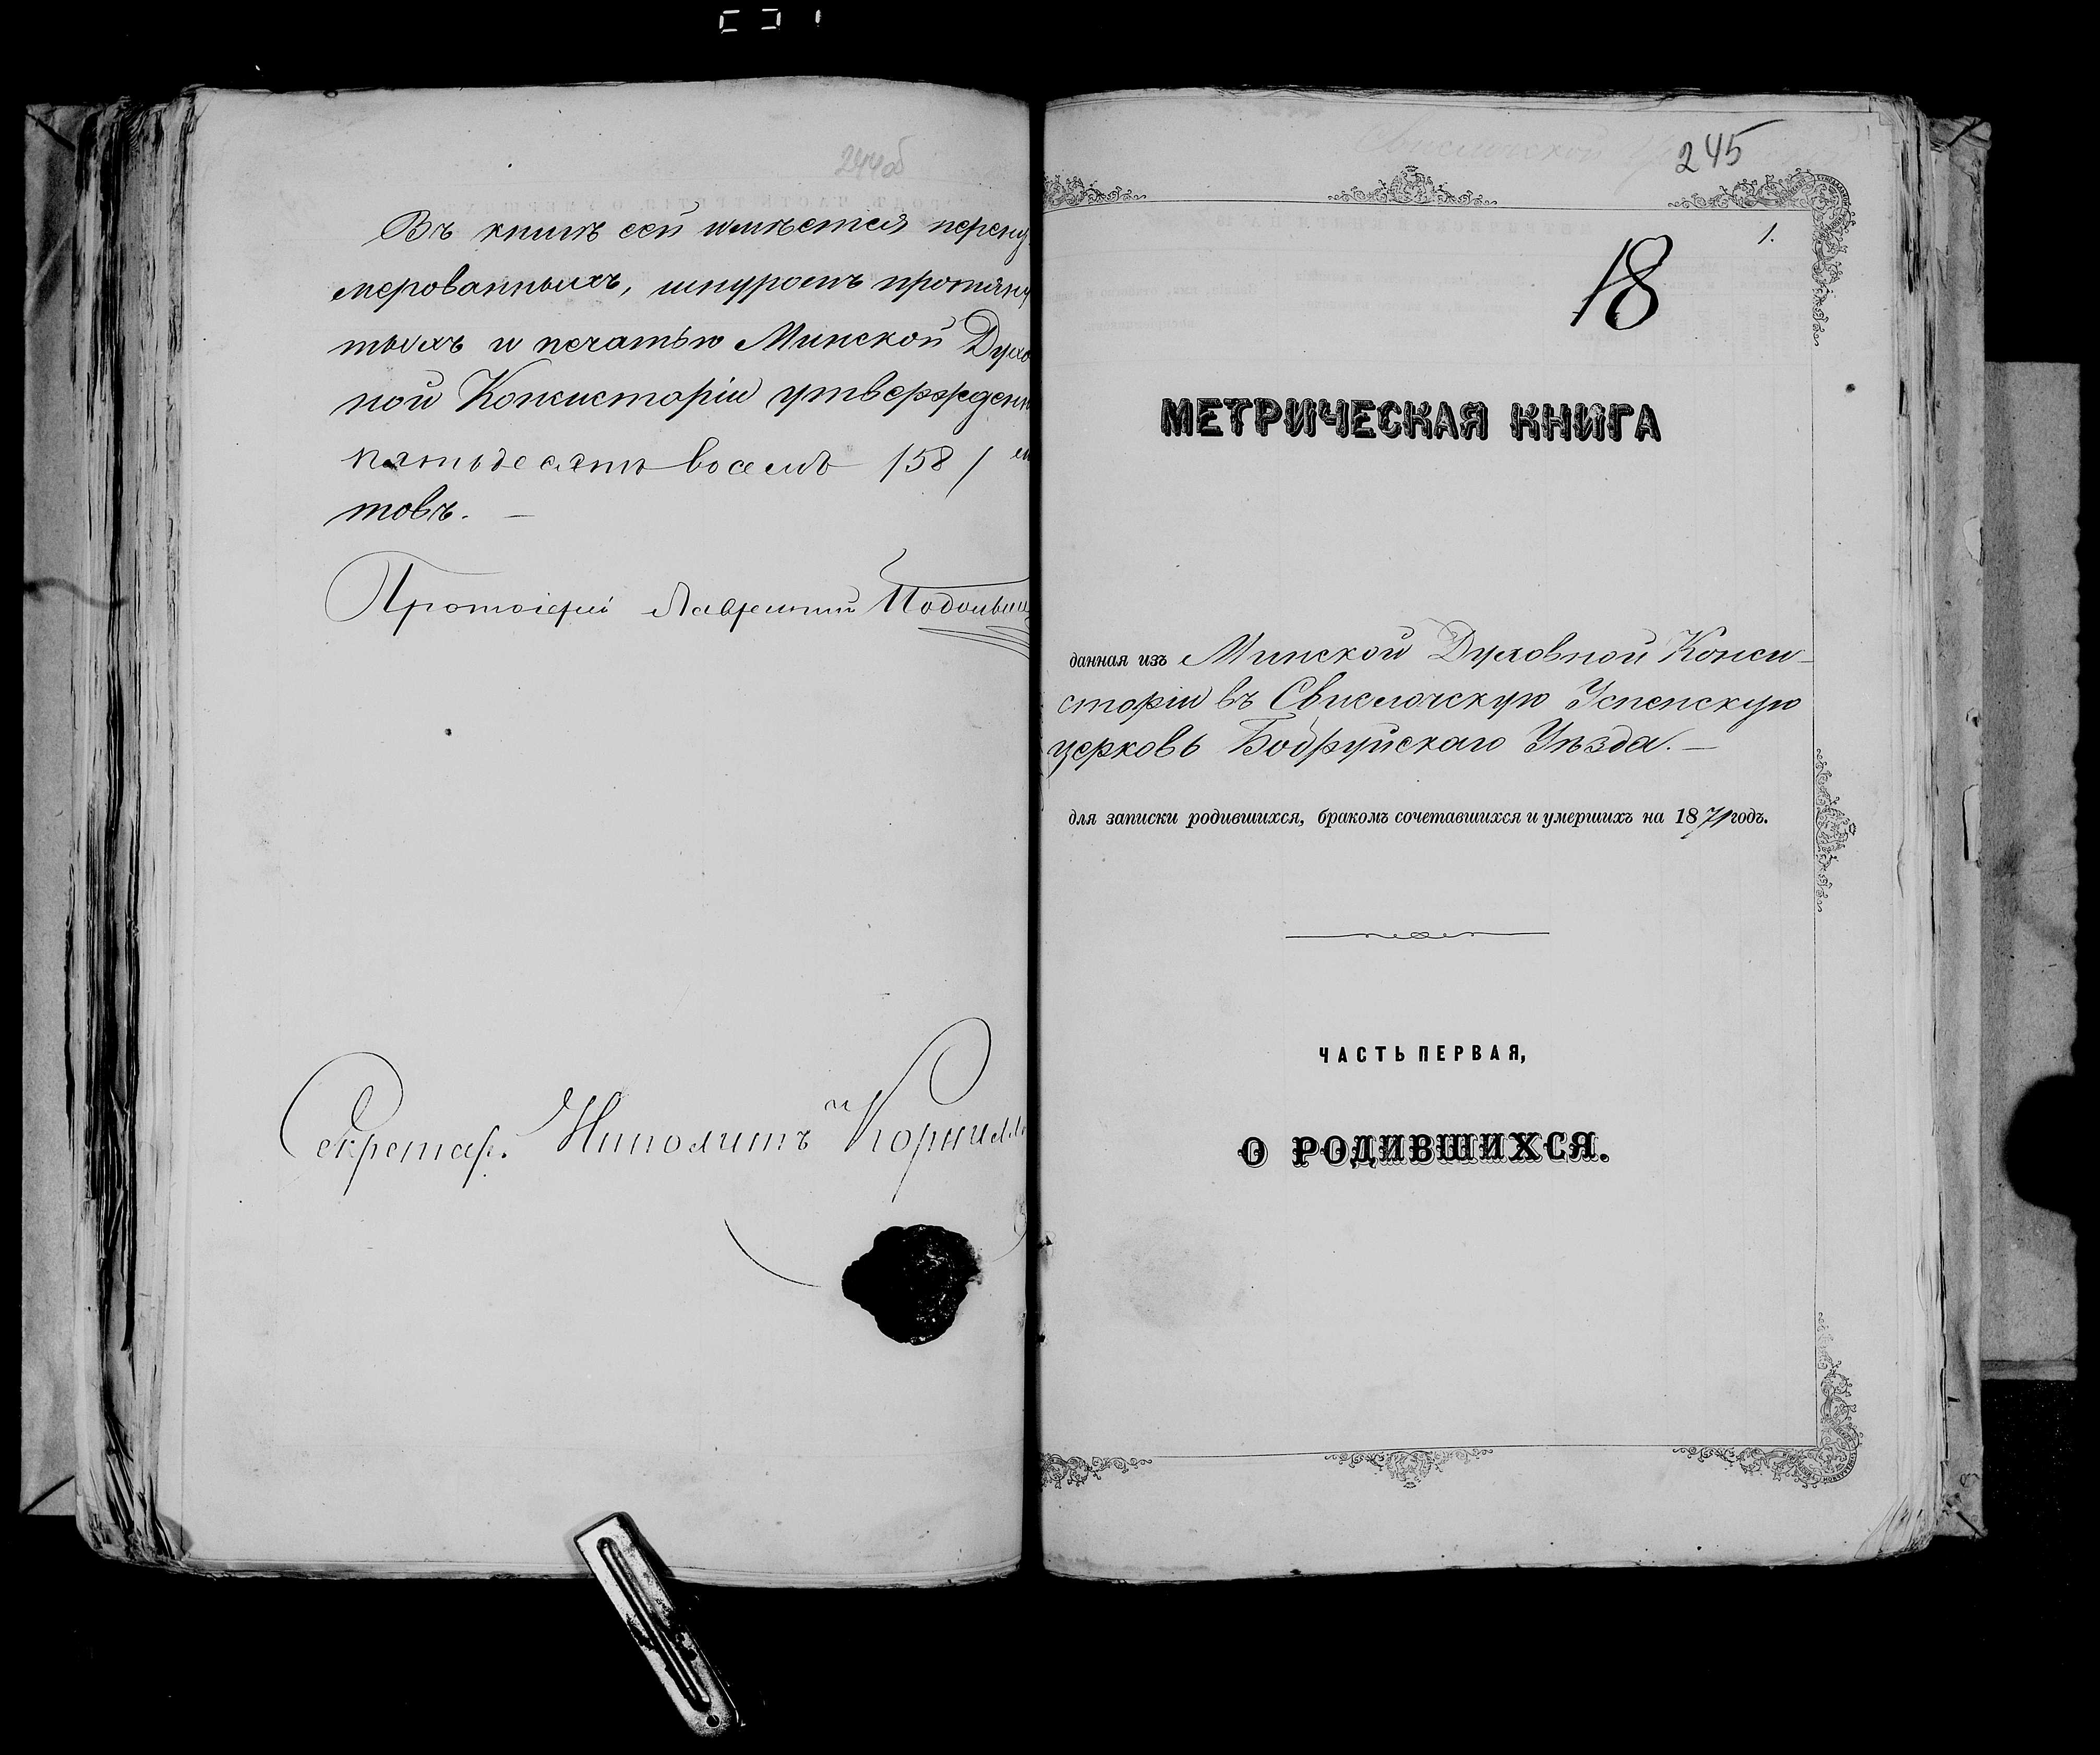 244об
Въ книгѣ сей имѣется перену
мерованныхъ, шнуромъ протяну
тыхъ и печатью Минской Духо
ной Консисторіи утвержден
пятьдесятъ восемь /58/
товъ. —
Протоіерей Лаврентій
Секретарь Иполитъ
245
1.
18
МЕТРИЧЕСКАЯ КНИГА
данная изъ Минской Духовной Конси-
сторіи въ Свислочскую Успенскую
церковь Бобруйскаго Уѣзда. —
для записки родившихся, бракомъ сочетавшихся и умершихъ на 1871 годъ.
ЧАСТЬ ПЕРВАЯ,
О РОДИВШИХСЯ.